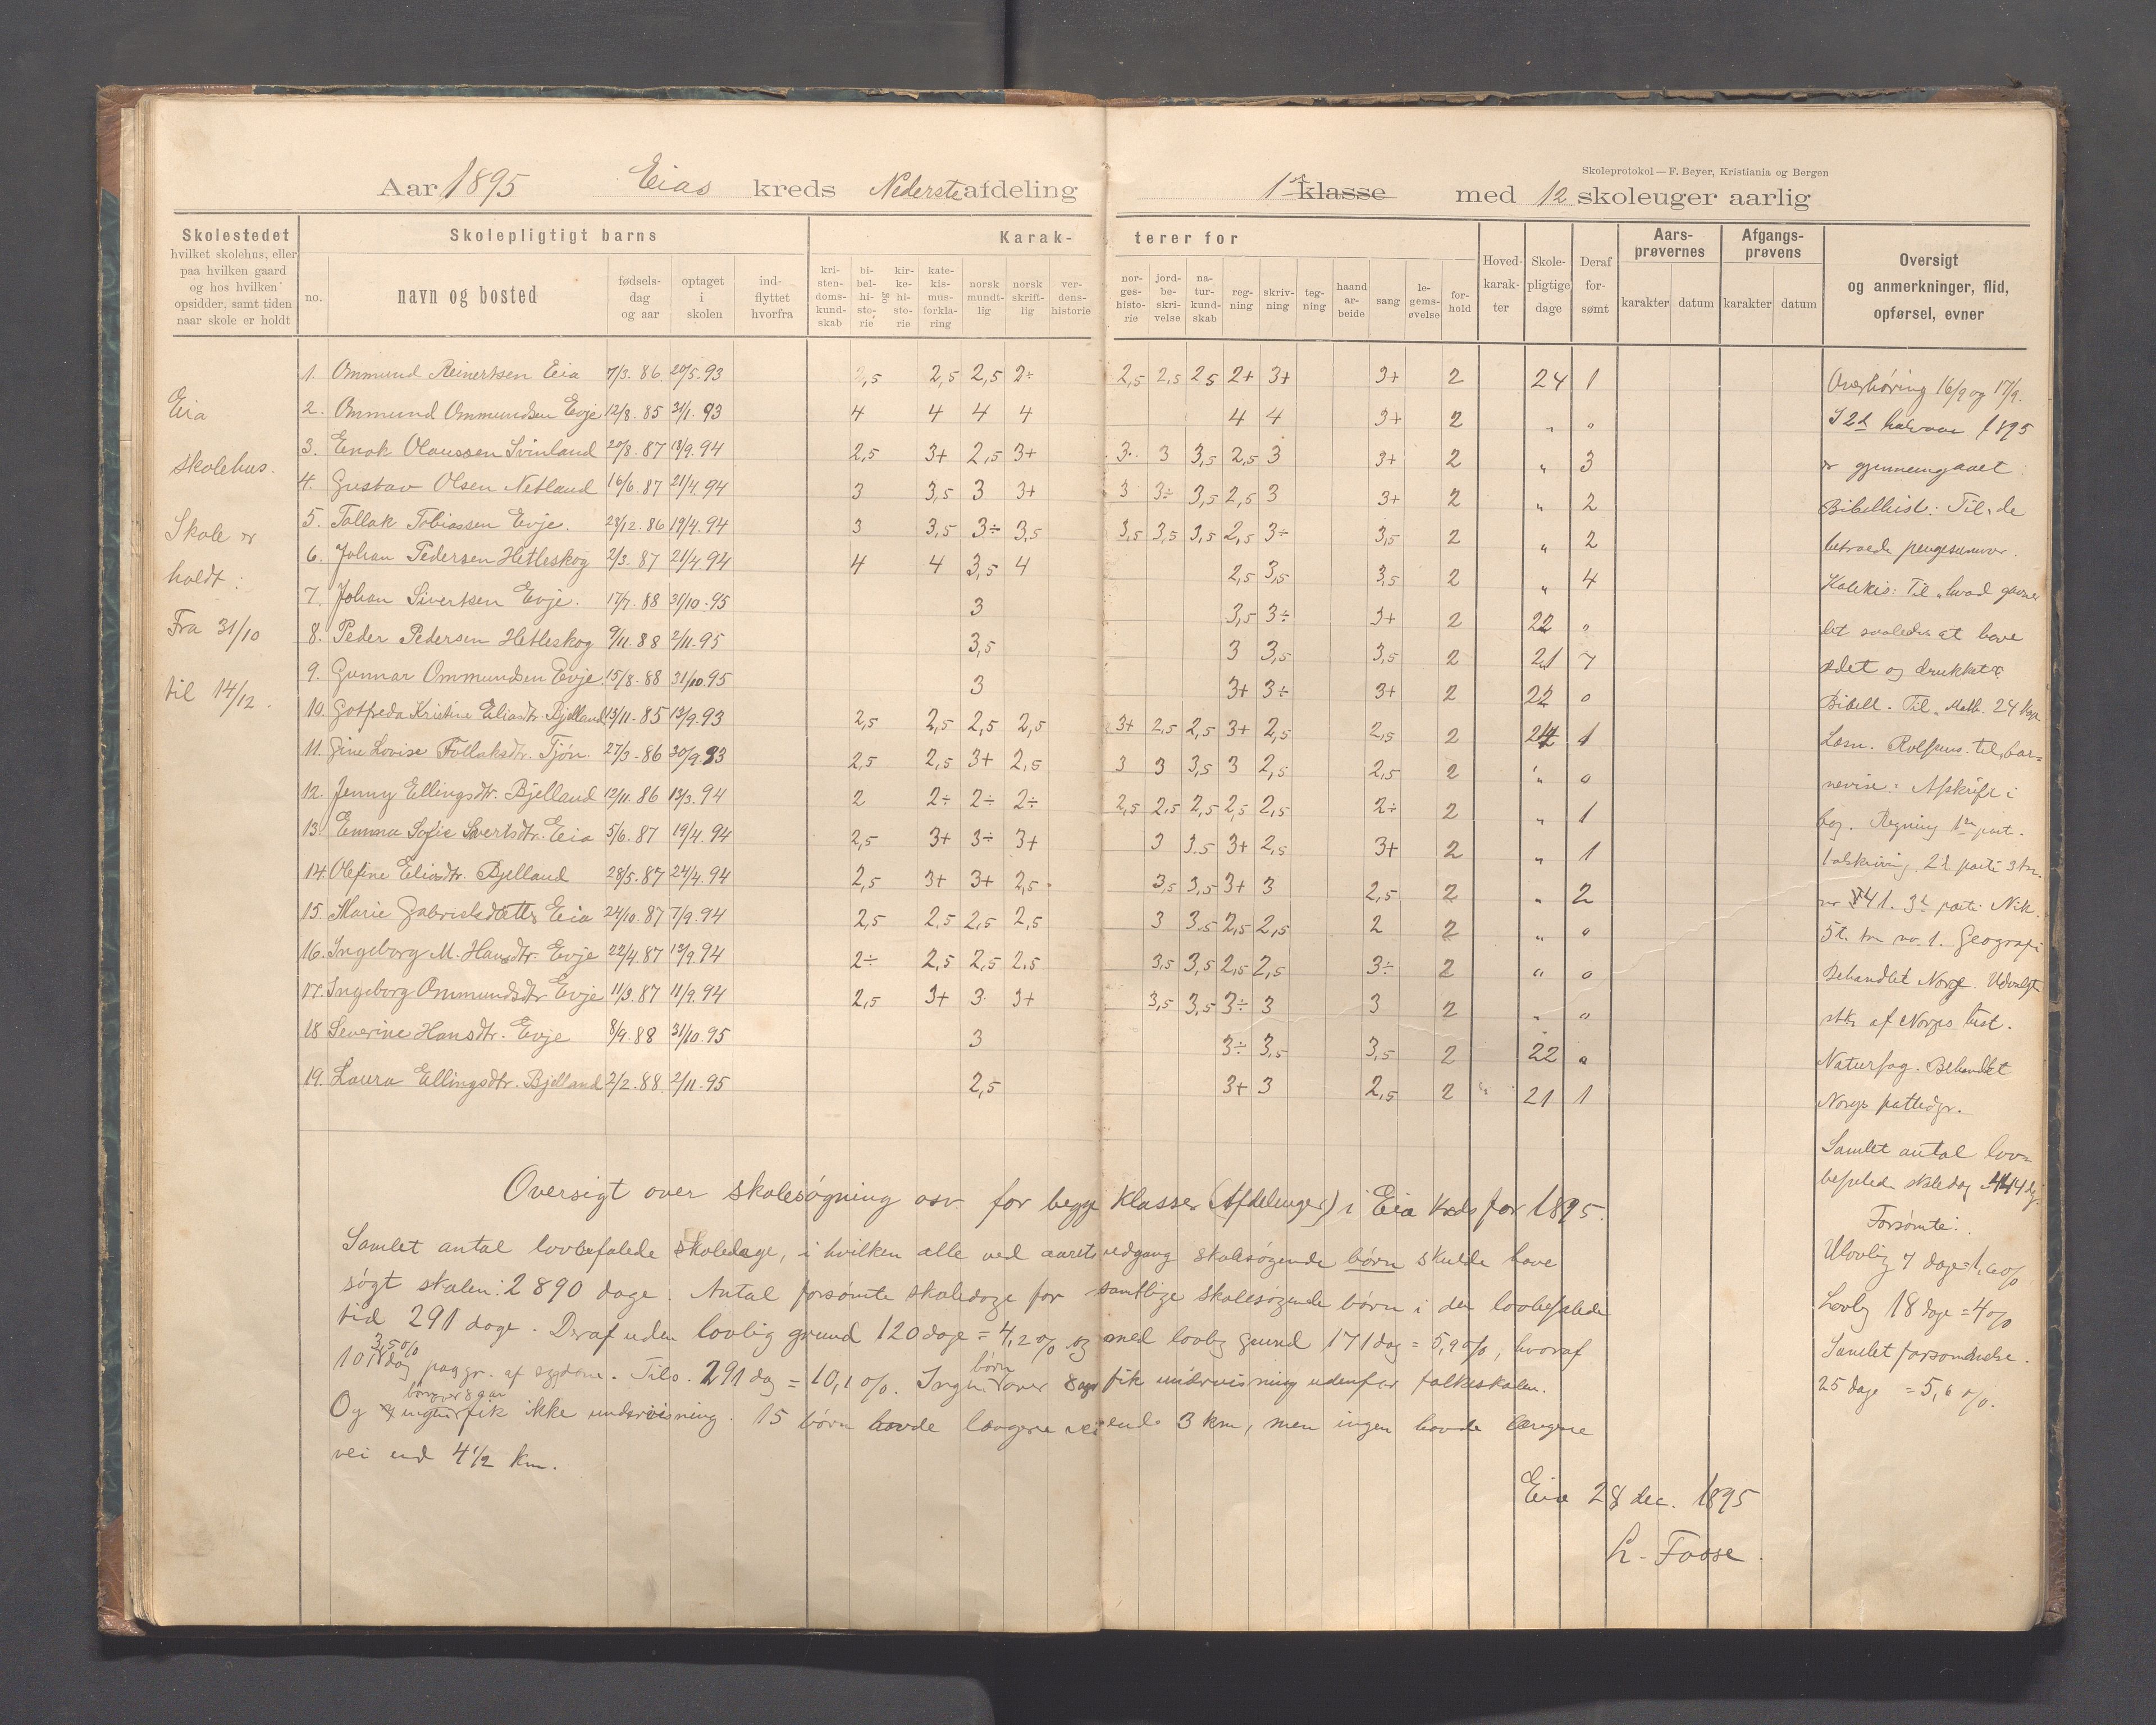 Skoleprotokol — F. Beyer, Kristiania og Bergen
Aar 1895 Eias kreds Nederste afdeling 1ste klasse med 12 skoleuger aarlig
Skolestedet
hvilket skolehus, eller
paa hvilken gaard
og hos hvilken
opsidder, samt tiden
naar skole er holdt
Skolepligtigt barns
no. navn og bosted
fødsels-dag og aar
optaget i skolen
ind-flyttet hvorfra
Karak-terer for
kri-sten-doms-kund-skab
bi-bel-hi-sto-rie
og
kir-ke-hi-sto-rie
kate-kis-mus-forkla-ring
norsk mundt-lig
norsk skrift-lig
ver-dens-historie
nor-ges-histo-rie
jord-be-skri-velse
na-tur-kund-skab
reg-ning
skriv-ning
teg-ning
haand ar-beide
sang
le-gems-øvelse
for-hold
Hoved-karak-ter
Skole-pligtige dage
Deraf for-sømt
Aars-prøvernes
karakter datum
Afgangs-prøvens
karakter datum
Oversigt
og anmerkninger, flid,
opførsel, evner
Eia
skolehus.
Skole er
holdt:
Fra 31/10
til 14/12.
1. Ommund Reinertsen Eia 7/3. 86. 20/5. 93 2,5 2,5 2,5 2÷ 2,5 2,5 2,5 2+ 3+ 3+ 2 24 1
2. Ommund Ommundsen Evje 12/8. 85 31/1. 93 4 4 4 4 4 4 3+ 2 „ „
3. Enok Olaussen Svinland 20/8. 87 13/9. 94 2,5 3+ 2,5 3+ 3. 3 3,5 2,5 3 3+ 2 „ 3
4. Gustav Olsen Netland 16/6. 87 21/4. 94 3 3,5 3 3+ 3 3÷ 3,5 2,5 3 3+ 2 „ 2
5. Tallak Tobiassen Evje. 28/12. 86 19/4. 94 3 3,5 3÷ 3,5 3,5 3,5 3,5 2,5 3÷ 3,5 2 „ 2
6. Johan Pedersen Hetleskog 2/3. 87 21/4. 94 4 4 3,5 4 2,5 3,5 3,5 2 „ 4
7. Johan Sivertsen Evje. 17/7. 88 31/10. 95 3 3,5 3÷ 3+ 2 22 „
8. Peder Pedersen Hetleskog 9/11. 88 2/11. 95 3,5 3 3,5 3,5 2 21 7
9. Gunnar Ommundsen Evje. 15/8. 88 31/10. 95 3 3+ 3÷ 3+ 2 22 0
10. Gotfreda Kristine Eliasdtr. Bjelland 13/11. 85 13/9. 93 2,5 2,5 2,5 2,5 3+ 2,5 2,5 3+ 2,5 2,5 2 24 1
11. Gine Lovise Tollaksdtr. Tjøn. 27/3. 86 30/9. 93 2,5 2,5 3+ 2,5 3 3 3,5 3 2,5 2,5 2 „ 0
12. Jenny Ellingsdtr. Bjelland 12/11. 86 13/3. 94 2 2÷ 2÷ 2÷ 2,5 2,5 2,5 2,5 2,5 2÷ 2 „ 1
13. Emma Sofie Sivertsdtr. Eia 5/6. 87 19/4. 94 2,5 3+ 3÷ 3+ 3 3.5 3+ 2,5 3+ 2 „ 1
14. Olefine Eliasdtr. Bjelland 28/5. 87 24/4. 94 2,5 3+ 3+ 2,5 3,5 3,5 3+ 3 2,5 2 „ 2
15. Marie Gabrielsdatter Eia 24/10. 87 7/9. 94 2,5 2,5 2,5 2,5 3 3.5 2,5 2,5 2 2 „ 0
16. Ingeborg M. Hansdtr. Evje 22/4. 87 13/9. 94 2÷ 2,5 2,5 2,5 3,5 3,5 2,5 2,5 3÷ 2 „ 0
17. Ingeborg Ommundsdtr Evje 11/3. 87 11/9. 94 2,5 3+ 3 3+ 3,5 3,5 3÷ 3 3 2 „ „
18 Severine Hansdtr. Evje 8/9. 88 31/10. 95 3 3÷ 3,5 3,5 2 22 „
19. Laura Ellingsdtr. Bjelland 2/2. 88. 2/11. 95 2,5 3+ 3 2,5 2 „ 21 1
Overhøring 16/9 og 17/9.
I 2det halvaar 1895
er gjennemgaaet:
Bibelhist.: Til „de
betroede pengesummer.
Katekis: Til „hvad gavner
det saaledes at have
ædet og drukket?
Bibell. Til „Math. 24 kap.
Læsn. Rolfsens. til „bar=
nevise: Afskrift i
bog. Regning 1ste part.
talskrivning 2det parti
no 41. 3de parti
no. 1. Geografi
Behandlet Norge. Udvalgte
stkr af Norges hist.
Naturfag. Behandlet
Norges pattedyr.
Samlet antal lov=
befalede skoledag 444 dg.
Forsømte:
Ulovlig 7 dage=1,6%
Lovlig 18 dage=4%
Samlet forsømmelse.
25 dage = 5,6%.
Oversigt over skolesøgning osv. for begge Klasser (Afdelinger) i Eia Kreds for 1895.
Samlet antal lovbefalede skoledage, i hvilken alle ved aarets udgang skolesøgende børn skulde have
søgt skolen: 2890 dage. Antal forsømte skoledage for samtlige skolesøgende børn i den lovbefalede
tid 291 dage. Deraf uden lovlig grund 120 dage = 4,2% og med lovlig grund 171 dag = 5,9%, hvoraf
3,5%
101 dag paa gr. af sygdom. Tils. 291 dag = 10,1%. Ingen børn over 8 aar fik undervisning udenfor folkeskolen.
børn over 8 aar
Og ingen fik ikke undervisning. 15 børn havde længere vei end 3 km, men ingen havde længere
vei end 4 1/2 km.
Eia 28 dec. 1895
L. Fosse.